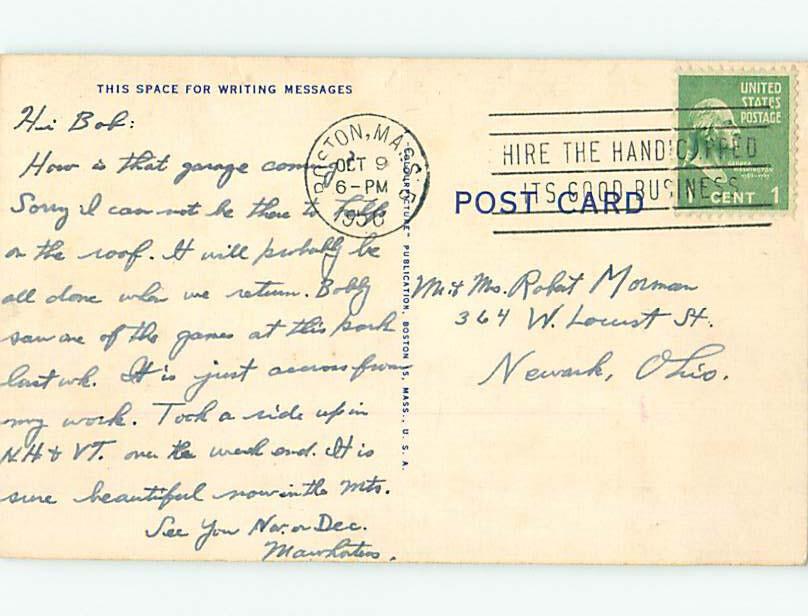 THIS SPACE FOR WRITING MESSAGES
Hi Bob:
How is that garage coming?
Sorry I can not be there to help
on the roof. It will probably be
all done when we return. Bobby
saw one of the games at this park
last wk. It is just accross from
my work. Took a ride up in
N.H & VT. over the week end. It is
sure beautiful now in the Mts.
See You Nov. or Dec.
COLOURPICTURE PUBLICATION, BOSTON 15, MASS., U.S.A.
BOSTON, MASS.
OCT 9
6-PM
1950
HIRE THE HANDICAPPED
ITS GOOD BUSINESS
UNITED
STATES
POSTAGE
WASHINGTON
1 CENT 1
POST CARD
Mr & Mrs. Robert Morman
364 W. Locust St.
Newark, Ohio.